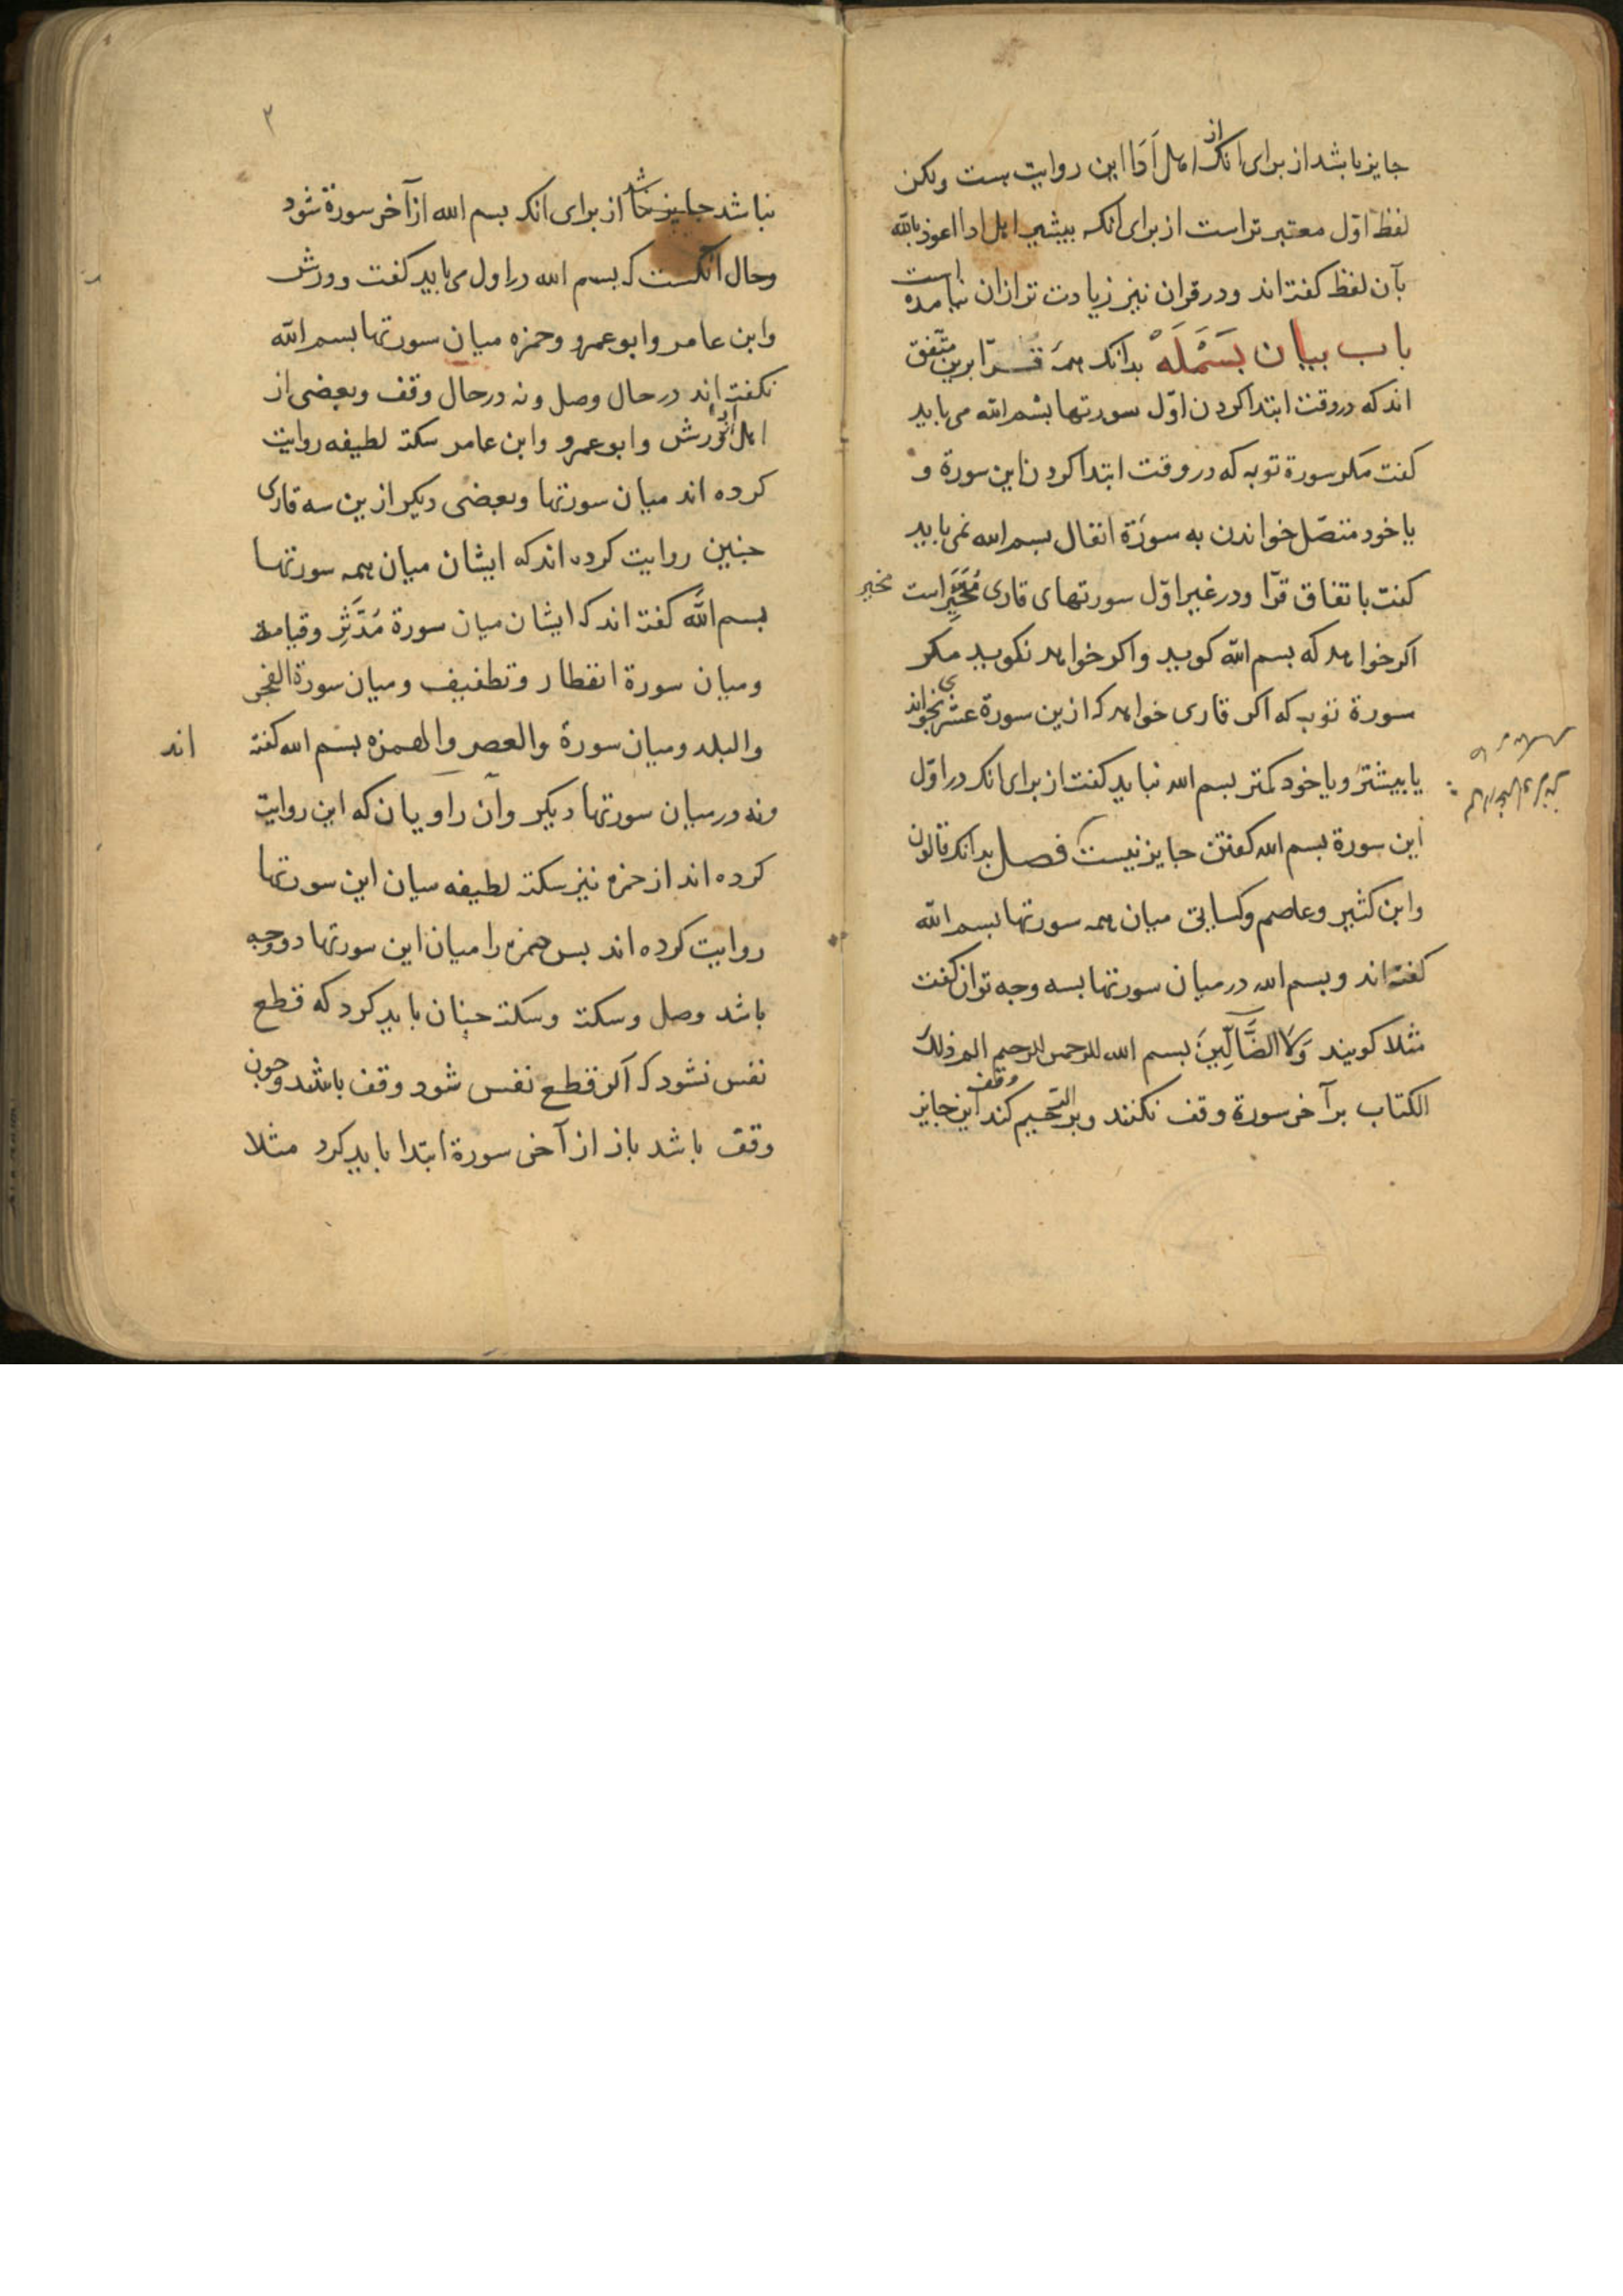 جایز باشد از برای انک از اهل اَدَا این روایت هست ولکن
لفظ اوّل معتبرتر است از برای انکه بیشتر اهل ادا اعوذ بالله
بآن لفظ کفته‌اند ودر قران نیز زیادت تر از ان نیامده است
باب بیان بَسْمَلَهْ بدانک همه قرّا برین متّفق
اند که در وقت ابتدا کردن اوّل سورتها بسم الله می باید
کفت مکر سورة توبه که در وقت ابتدا کردن این سورة و
یا خود متصّل خواندن به سورة انفال بسم الله نمی باید
کفت باتفاق قرّا ودر غیر اوّل سورتهای قاری مُخَیَّر است مخیر
اکر خواهد که بسم الله کوید واکر خواهد نکوید مکر
سورة توبه که اکر قاری خواهد که ازین سورة عشری بخواند
یا بیشتر ویا خود کمتر بسم الله نباید کفت از برای انک در اوّل
این سورة بسم الله کفتن جایز نیست فصل بدانک قالون
وابن کثیر وعاصم وکسایی میان همه سورتها بسم الله
کفته‌اند وبسم الله در میان سورتها بسه وجه توان کفت
مثلا کویند وَلاَ الضَّآلِّینَ بسم الله الرحمن الرحیم الم ذلک
الکتاب بر آخر سورة وقف نکنند وبر الرّحیم وقف کند این جایز
٢
نباشد جایز باشد از برای انکه بسم الله از آخر سورة شود
وحال آنکست که بسم الله در اول می باید کفت وورش
وابن عامر وابو عمرو وحمزه میان سورتها بسم الله
نکفته‌اند در حال وصل ونه در حال وقف وبعضی از
اهل ادا از ورش وابو عمرو وابن عامر سکتهٔ لطیفه روایت
کرده اند میان سورتها وبعضی دیکر ازین سه قاری
جنین روایت کرده اند که ایشان میان همه سورتها
بسم الله کفته اند که ایشان میان سورة مُدَّثِّر وقیامة
ومیان سورة انفطار وتطفیف ومیان سورة الفجر
والبلد ومیان سورة والعصر والهمزه بسم الله کفته اند
ونه در میان سورتها دیکر وآن راویان که این روایت
کرده اند از حمزه نیز سکتهٔ لطیفه میان این سورتها
روایت کرده اند بس حمزه را میان این سورتها دو وجه
باشد وصل وسکته وسکته جنان باید کرد که قطع
نفس نشود که اکر قطع نفس شود وقف باشد وچون
وقف باشد باز از آخر سورة ابتدا باید کرد مثلا